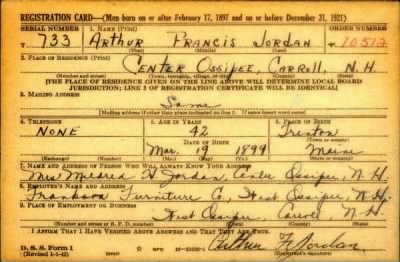 REGISTRATION CARD—(Men born on or after February 17, 1897 and on or before December 31, 1921)
SERIAL NUMBER 1. NAME (Print) ORDER NUMBER
T 733 Arthur Francis Jordan T 10512
(First) (Middle) (Last)
2. PLACE OF RESIDENCE (Print)
Center Ossipee, Carroll, N.H.
(Number and street) (Town, township, village, or city) (County) (State)
[THE PLACE OF RESIDENCE GIVEN ON THE LINE ABOVE WILL DETERMINE LOCAL BOARD
JURISDICTION; LINE 2 OF REGISTRATION CERTIFICATE WILL BE IDENTICAL]
3. MAILING ADDRESS
Same
(Mailing address if other than place indicated on line 2. If same insert word same)
4. TELEPHONE 5. AGE IN YEARS 6. PLACE OF BIRTH
None 42 Trenton
DATE OF BIRTH (Town or county)
Mar. 19 1899 Maine
(Exchange) (Number) (Mo.) (Day) (Yr.) (State or country)
7. NAME AND ADDRESS OF PERSON WHO WILL ALWAYS KNOW YOUR ADDRESS
Mrs Mildred H. Jordan, Center Ossipee, N.H.
8. EMPLOYER'S NAME AND ADDRESS
Furniture Co., West Ossipee, N.H.
9. PLACE OF EMPLOYMENT OR BUSINESS
West Ossipee, Carroll N.H.
(Number and street or R. F. D. number) (Town) (County) (State)
I AFFIRM THAT I HAVE VERIFIED ABOVE ANSWERS AND THAT THEY ARE TRUE.
D. S. S. Form 1
(Revised 1-1-42) GPO Arthur F. Jordan